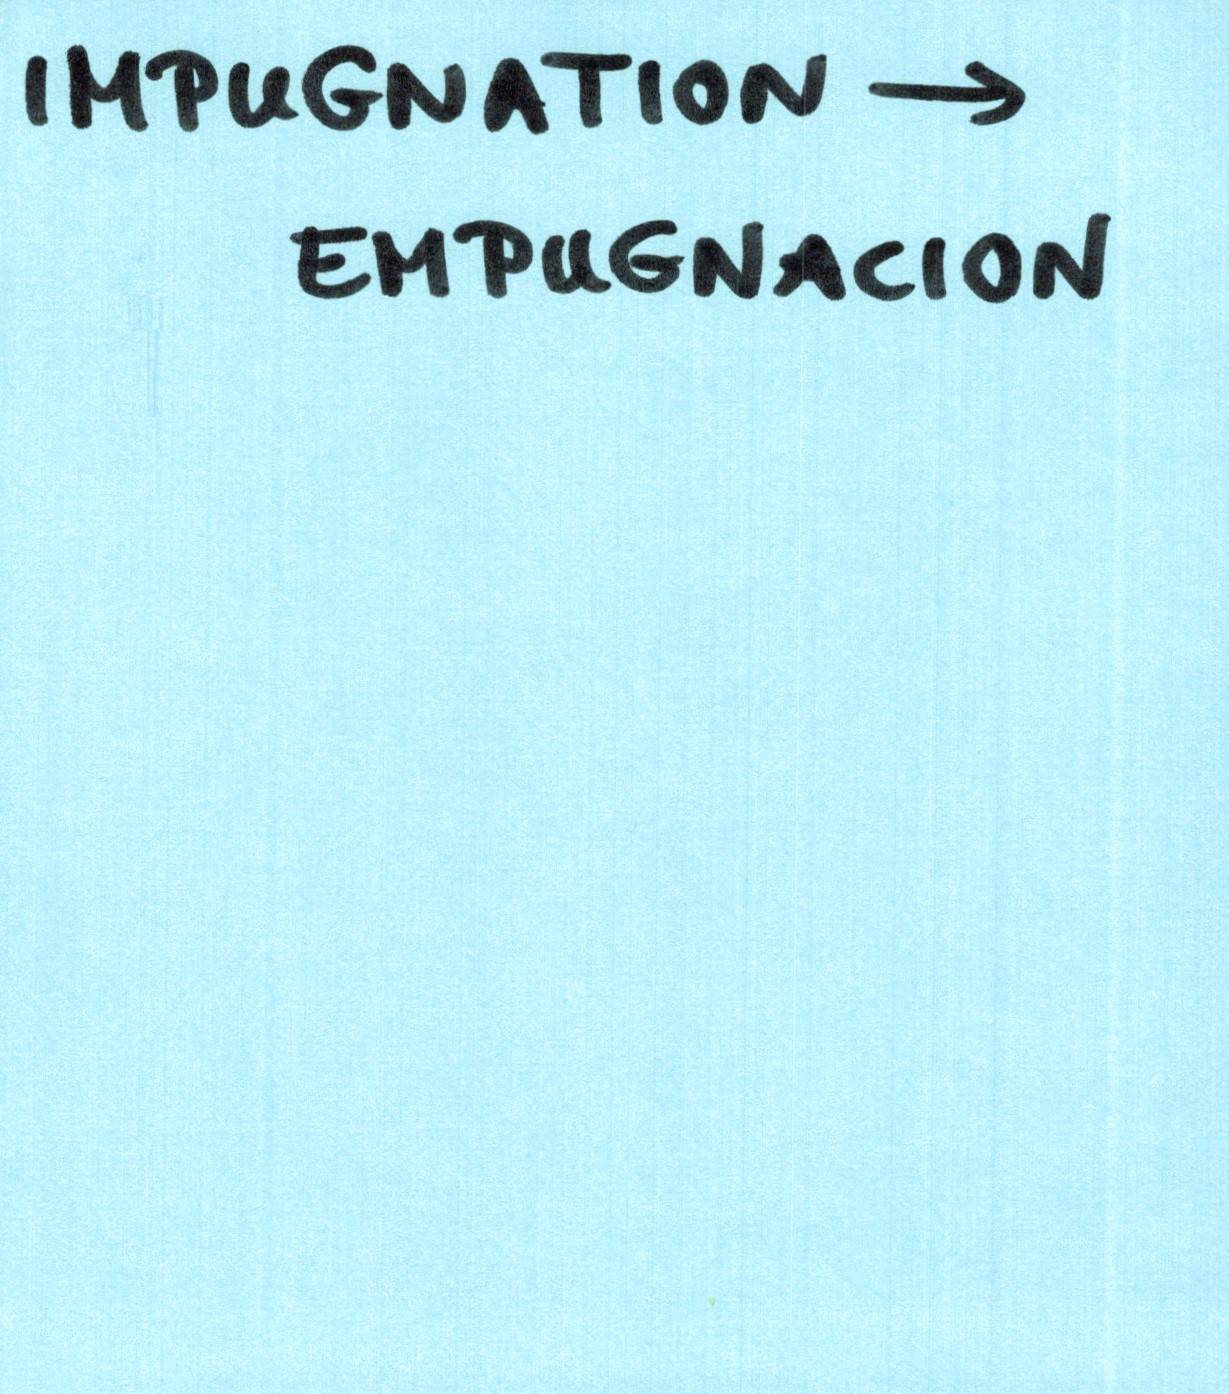 IMPUGNATION →
EMPUGNACION